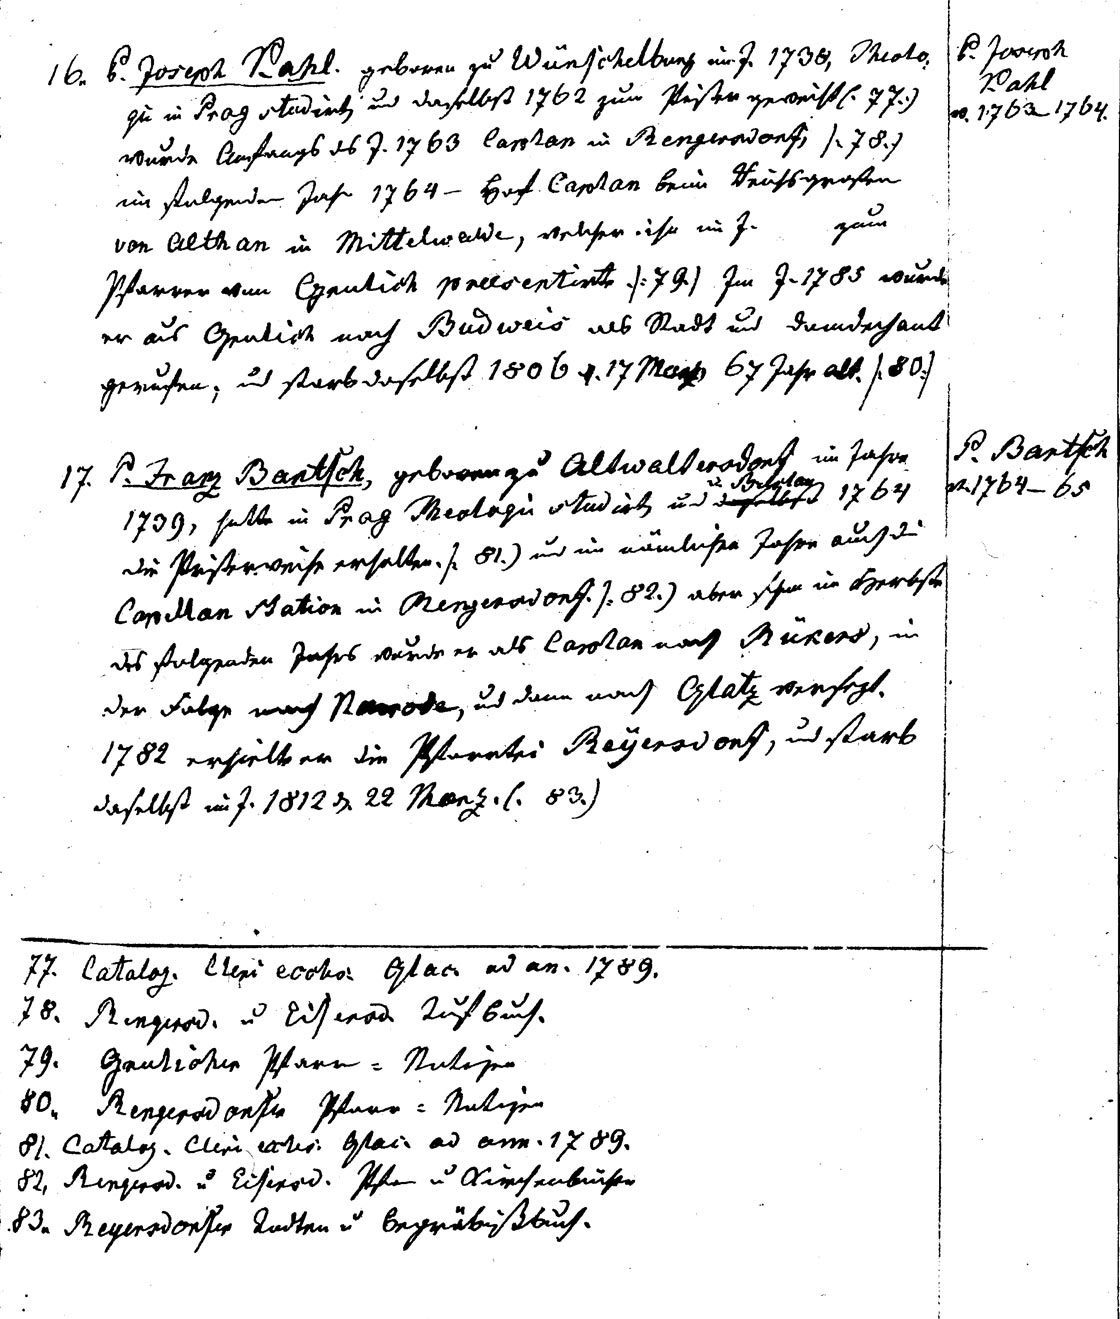 16. P. Joseph Kahl. geboren zu Wünschelburg im J. 1738, Theolo-
gie in Prag studirt, und daselbst 1762 zum Priester geweiht (: 77.:)
wurde Anfangs des J. 1763 Caplan in Rengersdorf, /: 78.:/
im folgenden Jahr 1764 – Hof Caplan beim Reichsgrafen
von Althan in Mittelwalde, welcher ihn im J. zum
Pfarrer von präsentirte /: 79:/ Im J. 1785 wurde
er aus nach Budweis als Stadt und Domdechant
gerufen, und starb daselbst 1806 d. 17 März 67 Jahr alt. /: 80:/
P. Joseph
Kahl
v. 1763–1764.
17. P. Franz Bartsch, geboren zu Altwaltersdorf im Jahre
1739, hatte in Prag Theologie studirt, und daselbst 1764
die Priesterweihe erhalten. /: 81.:) und im nämlichen Jahre auch die
Capellan Station in Rengersdorf. /: 82.:) aber schon im Herbste
des folgenden Jahrs wurde er als Caplan nach Rükers, in
der Folge nach Neurode, und dann nach Glatz versezt.
1782 erhielt er die Pfarrtei Reÿersdorf, und starb
daselbst im J. 1812 d. 22 Maerz. (: 83.)
P. Bartsch
v. 1764–65
77. Catalog. Cleri eccles. Glac. ad an. 1789.
78. Rengersd. u Eisersd. Taufbuch.
79. Pfarr = Notizen
80. Rengersdorfer Pfarr = Notizen
81. Catalog. Cleri eccles. Glac. ad ann. 1789.
82. Rengersd. u Eisersd. Pfarr u Kirchenbücher
83. Reyersdorfer Todten u Begräbnißbuch.